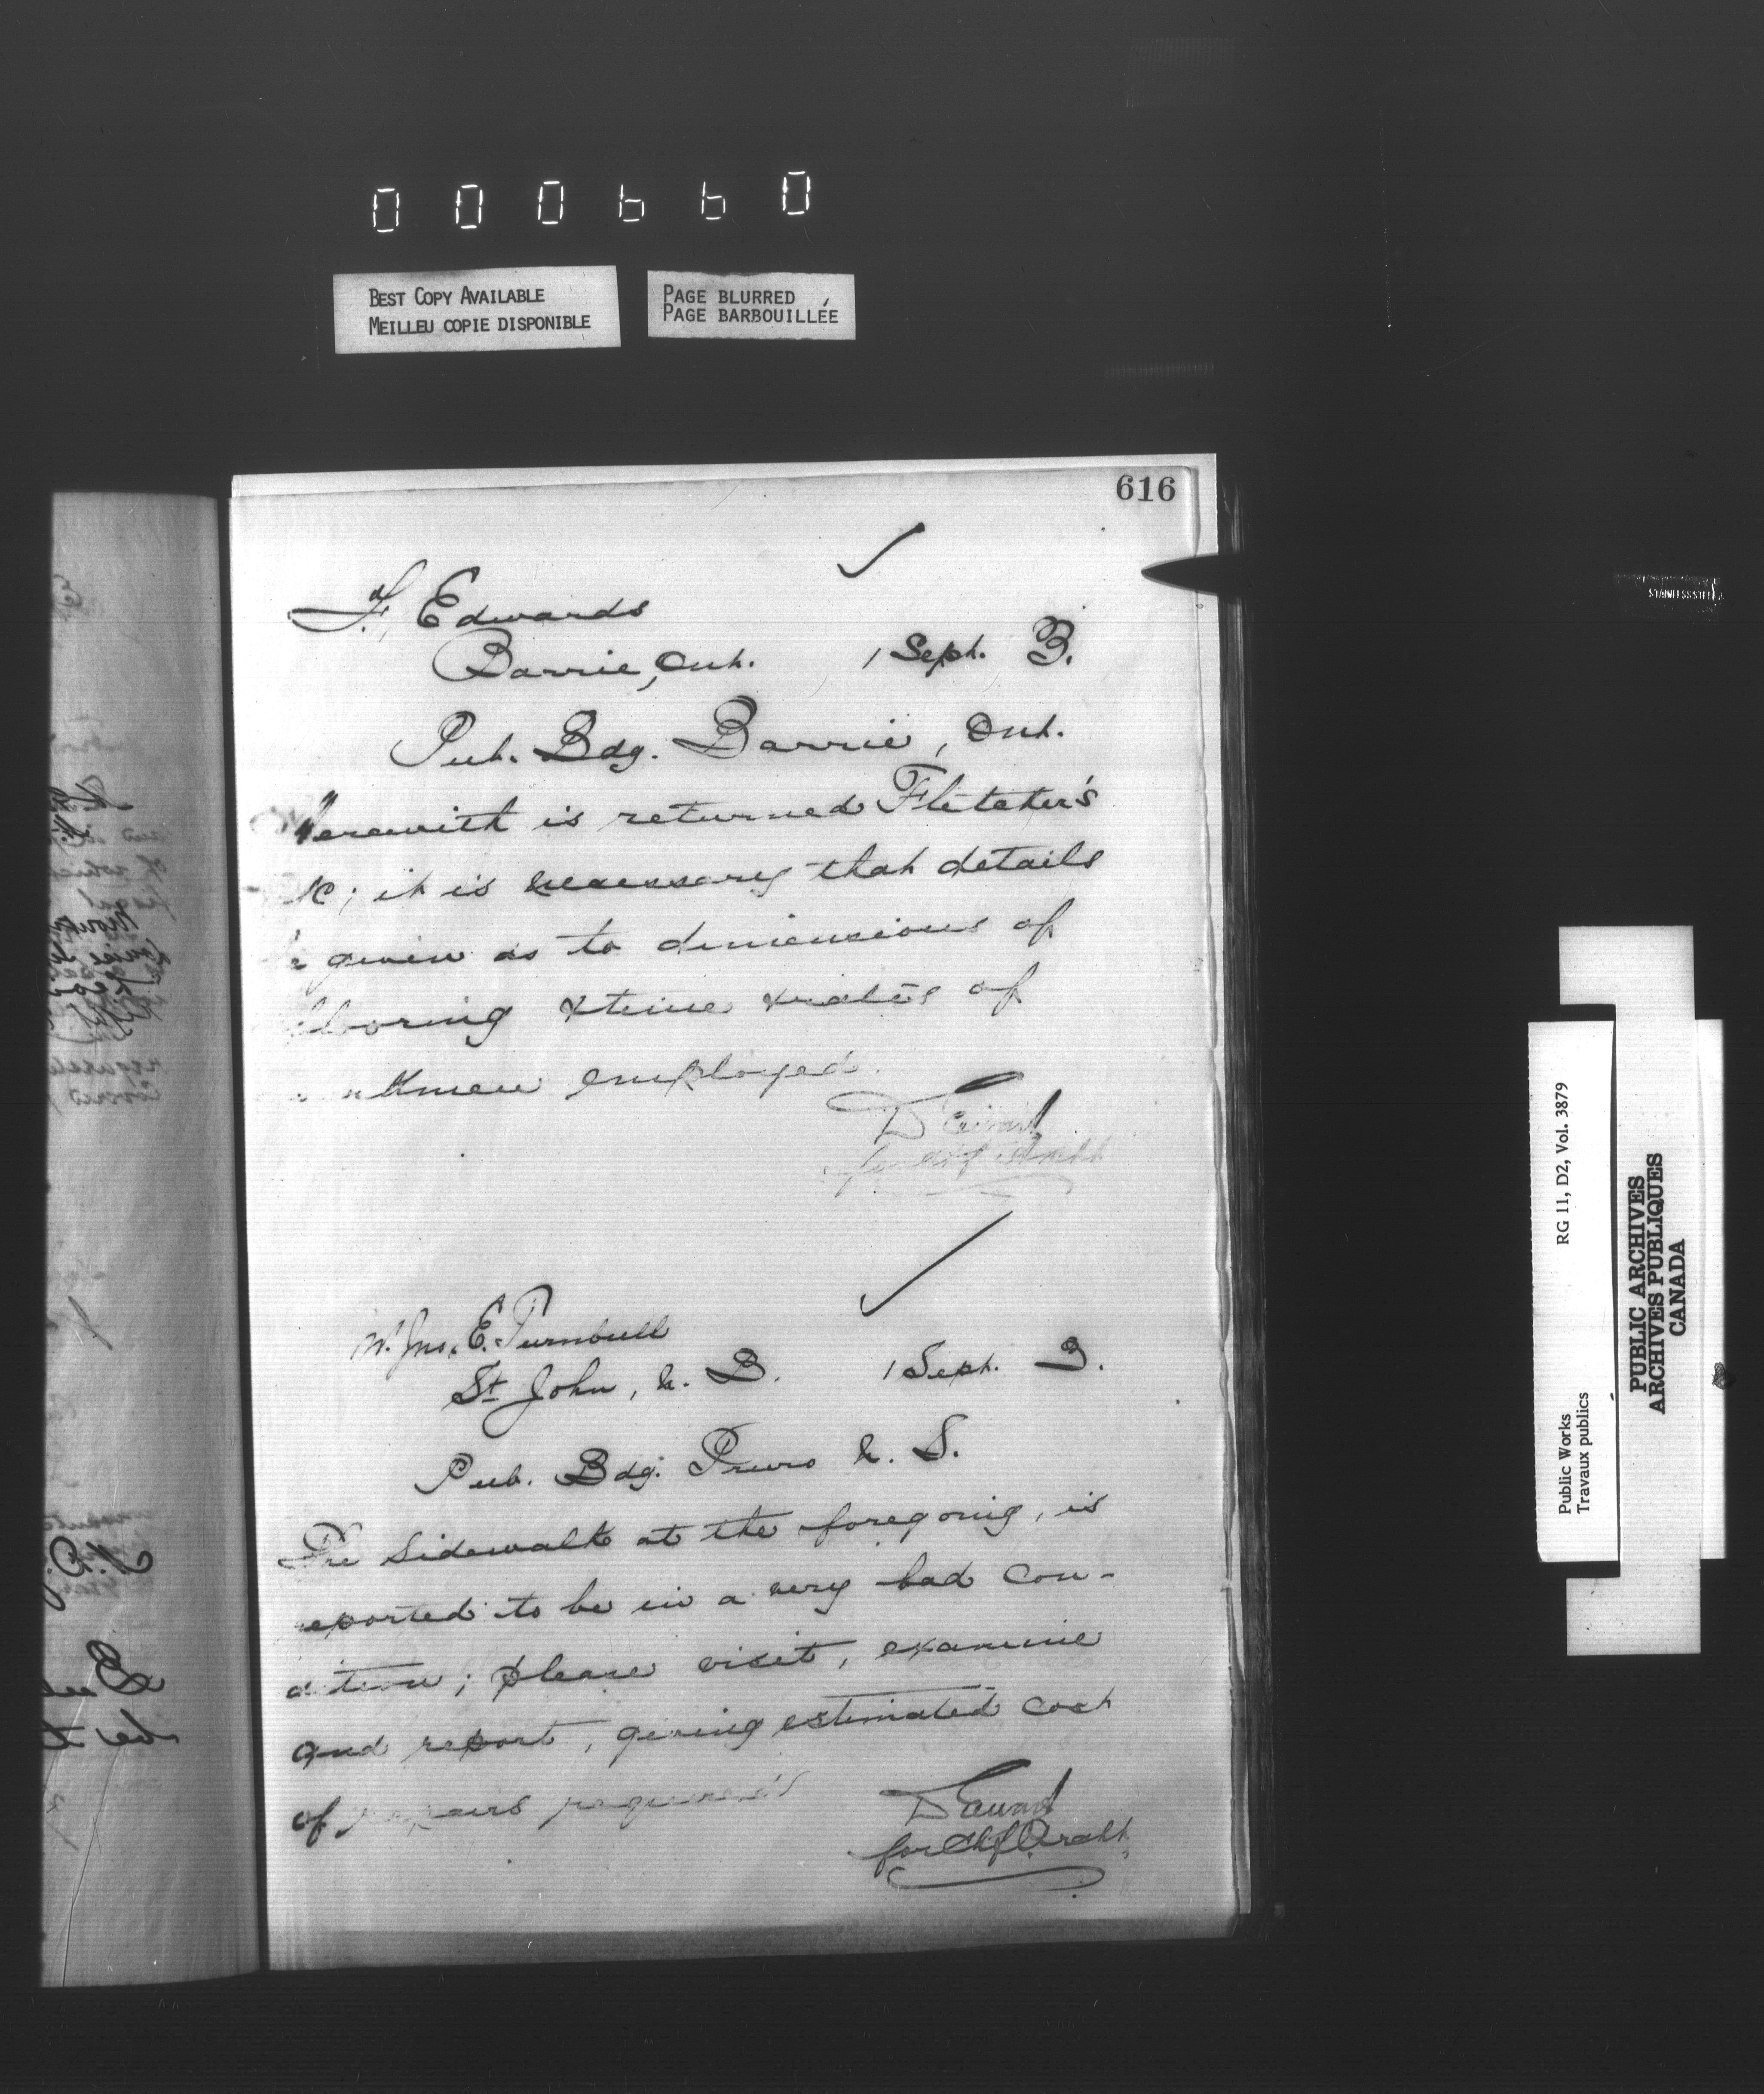 000660
BEST COPY AVAILABLE
MEILLEU COPIE DISPONIBLE
PAGE BLURRED
PAGE BARBOUILLÉE
616
F, Edwards
Barrie, Ont. 1 Sept. 3.
Pub. Bdg. Barrie, Ont.
Herewith is returned Fletcher's
c; it is necessary that details
given as to dimensions of
looring & time & rates of
kmen employed.
D Ewart
W. Jno. E. Turnbull
St John, N. B. 1 Sept. 3.
Pub. Bdg. Truro N. S.
The Sidewalk at the foregoing, is
eported to be in a very bad con-
dition; please visit, examine
and report, giving estimated cost
of repairs required
D Ewart
for Chf Archt.
STAINLESS STEEL
Public Works RG 11, D2, Vol. 3879
Travaux publics
PUBLIC ARCHIVES
ARCHIVES PUBLIQUES
CANADA